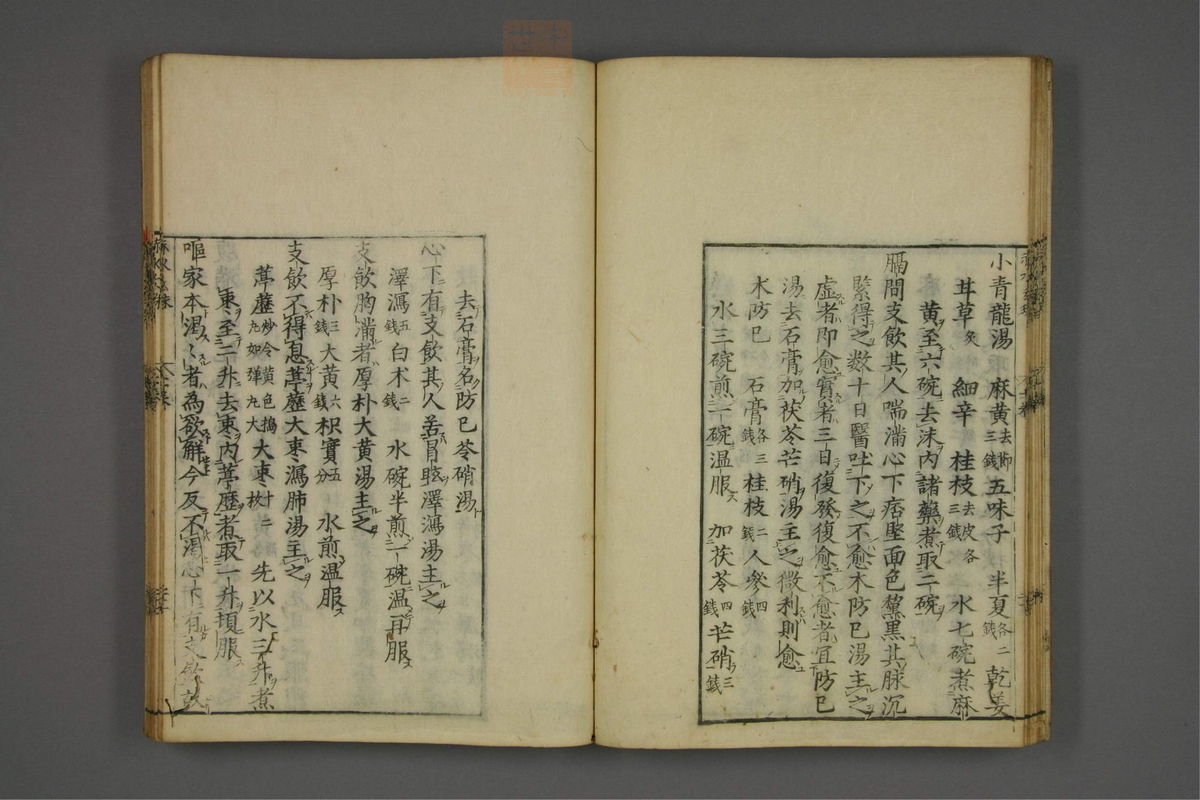 小青龍湯 麻黄去節三錢 五味子 半夏各二錢 乾姜
甘草炙 細辛 桂枝去皮各三錢 水七碗煮麻
黄至六碗去沫内諸藥煮取二碗
膈間支飲其人喘滿心下痞堅面色黧黒其脉沉
緊得之数十日醫吐下之不愈木防已湯主之
虚者即愈實者三日復發復愈不愈者宜防已
湯去石膏加茯苓芒硝湯主之微利則愈
木防已 石膏各三錢 桂枝二錢 人參四錢
水三碗煎一碗温服 加茯苓四錢 芒硝三錢
去石膏名防已苓硝湯
心下有支飲其人苦冒眩澤瀉湯主之
澤瀉五錢 白术二錢 水碗半煎一碗温再服
支飲胸滿者厚朴大黄湯主之
厚朴三錢 大黄六錢 枳實五分 水煎温服
支飲不得息葶藶大棗瀉肺湯主之
葶藶炒令黄色搗丸如弾丸大 大棗十二枚 先以水三升煮
棗至二升去棗内葶歴煮取一升頓服
嘔家本渇〻者為欲解今反不渇心下有支飲故